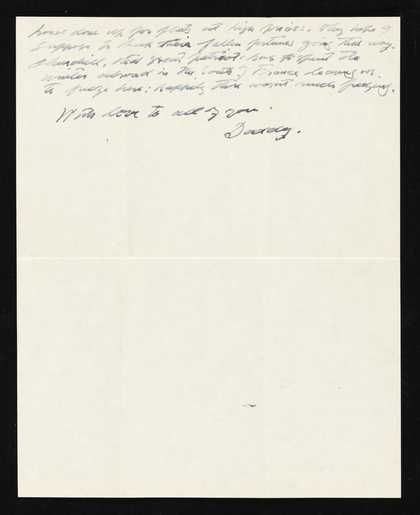 house done up for flats at high prices. They hope I
suppose to mend their fallen fortunes going that way.
Churchill, that great patriot, has spent the
winter abroad in the South of France leaving us
to freeze here; happily there wasn't much freezing.
With love to all of you.
Daddy.